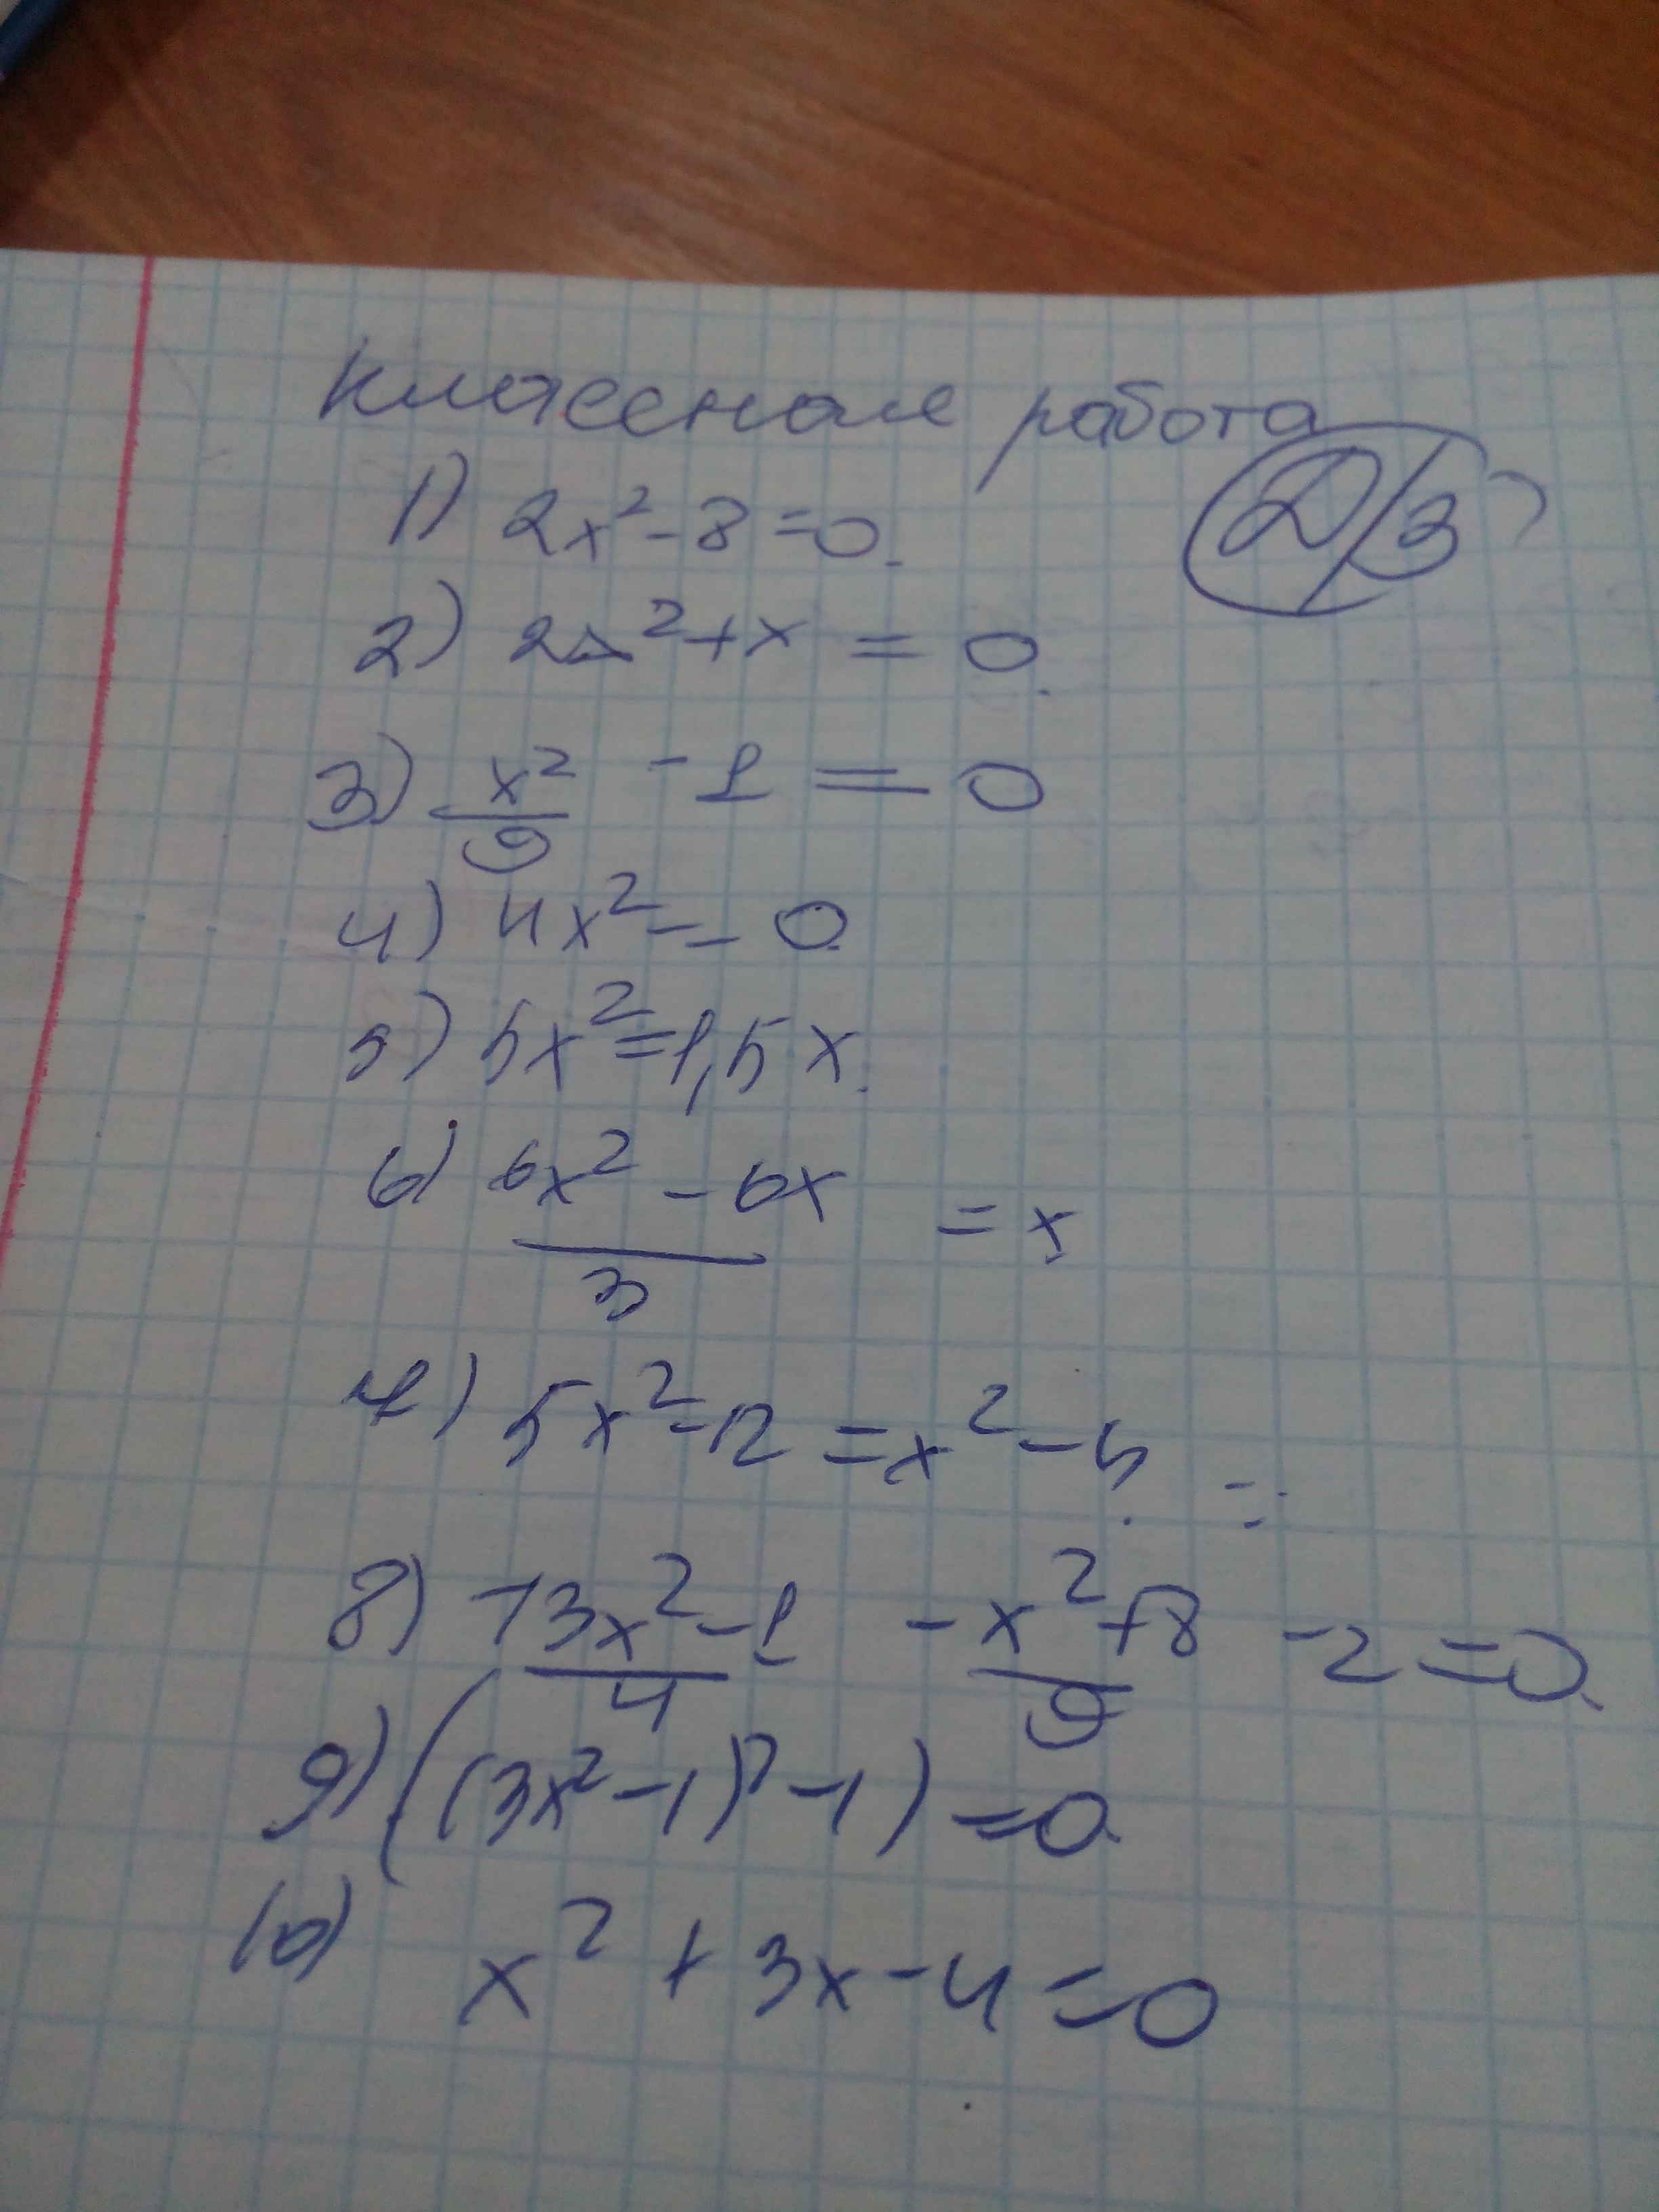 Классная работа
Д/З
1) 2x² - 8 = 0.
2) 2x² + x = 0.
3) x²/9 - 1 = 0
4) 4x² = 0.
5) 5x² = 1,5x.
6) (6x² - 6x)/3 = x
7) 5x² - 12 = x² - 5. =
8) (13x² - 1)/4 - (x² + 8)/9 - 2 = 0.
9) ((3x² - 1)² - 1) = 0.
10) x² + 3x - 4 = 0